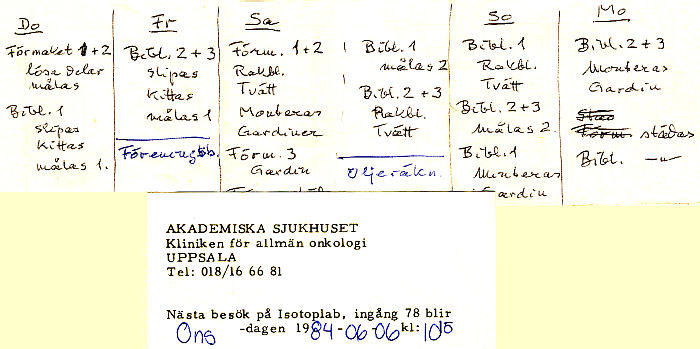 Do
Förmaket 1+2
lösa delar
målas
Bibl. 1
slipas
kittas
målas 1.
Fr
Bibl. 2+3
slipas
kittas
målas 1
Sa
Förm. 1+2
Rakbl.
Tvätt
Monteras
Gardiner
Förm. 3
Gardin
Bibl. 1
målas 2
Bibl. 2+3
Rakbl.
Tvätt
Oljeräkn.
So
Bibl. 1
Rakbl.
Tvätt
Bibl. 2+3
målas 2.
Bibl. 1
Monteras
Gardin
Mo
Bibl. 2+3
Monteras
Gardin
Förm. städas
Bibl. —"—
AKADEMISKA SJUKHUSET
Kliniken för allmän onkologi
UPPSALA
Tel: 018/16 66 81
Nästa besök på Isotoplab, ingång 78 blir
Ons -dagen 1984-06-06 kl: 10 15